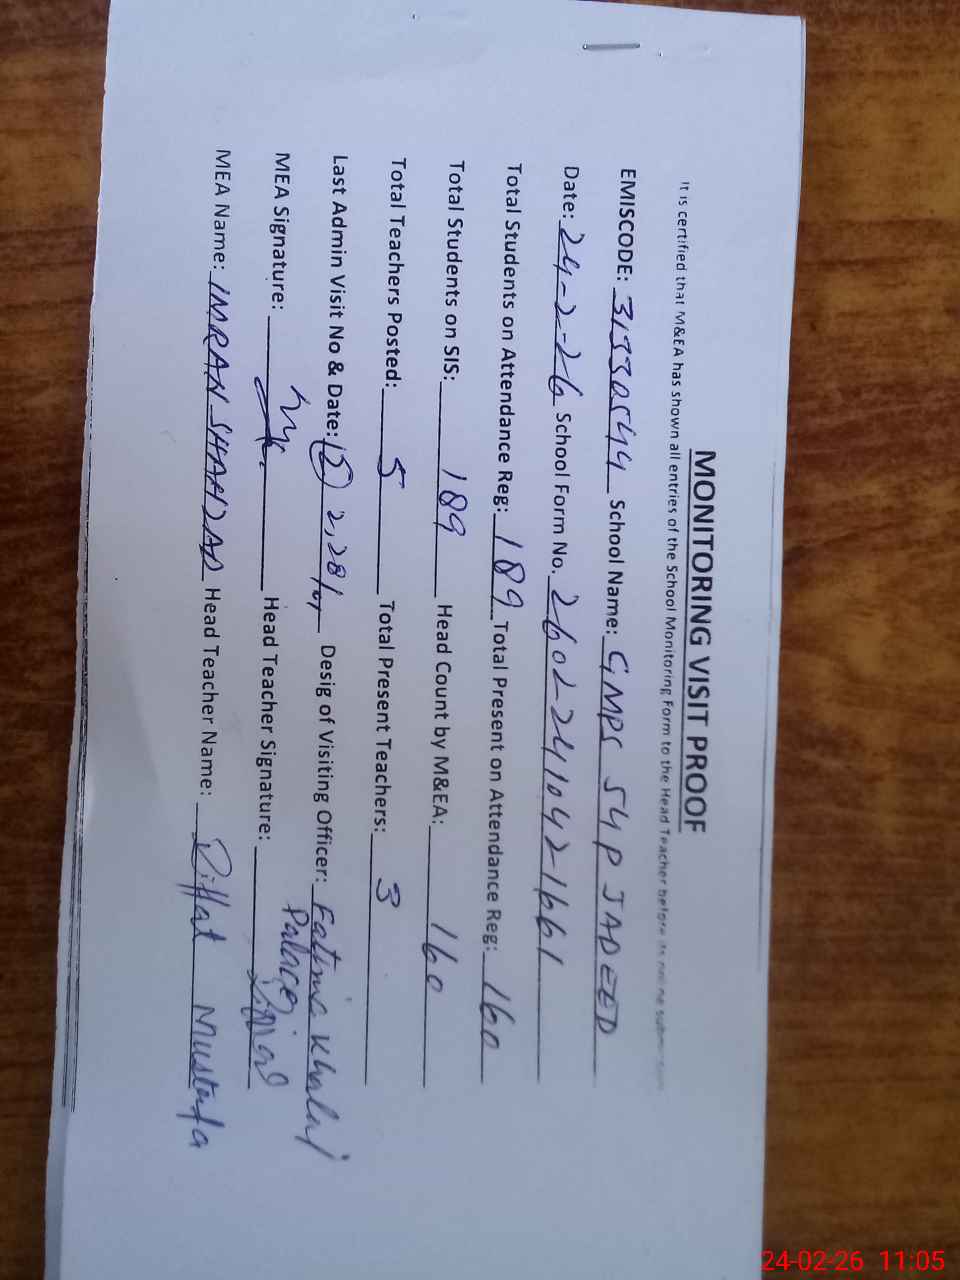 MONITORING VISIT PROOF
It is certified that M&EA has shown all entries of the School Monitoring Form to the Head Teacher before its online submission
EMISCODE: 31330544 School Name: GMPS 54 P JADEED
Date: 24-2-26 School Form No. 2602-241042-1661
Total Students on Attendance Reg: 189 Total Present on Attendance Reg: 160
Total Students on SIS: 189 Head Count by M&EA: 160
Total Teachers Posted: 5 Total Present Teachers: 3
Last Admin Visit No & Date: Desig of Visiting Officer: Fatima
MEA Signature: Head Teacher Signature:
MEA Name: IMRAN SHAHZAD Head Teacher Name: Riffat Mustafa
24-02-26 11:05